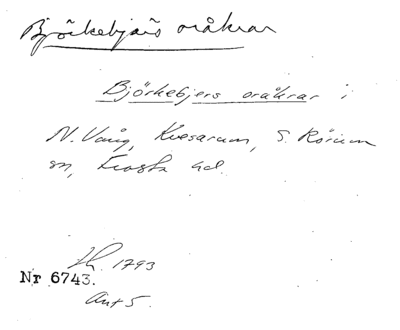 Björkebjärs oråkrar
Björkebjers oråkrar i
N. Vång, Kvesarum, S. Rörum
sn, Frosta hd.
lh. 1793
Nr 6743.
Akt 5.